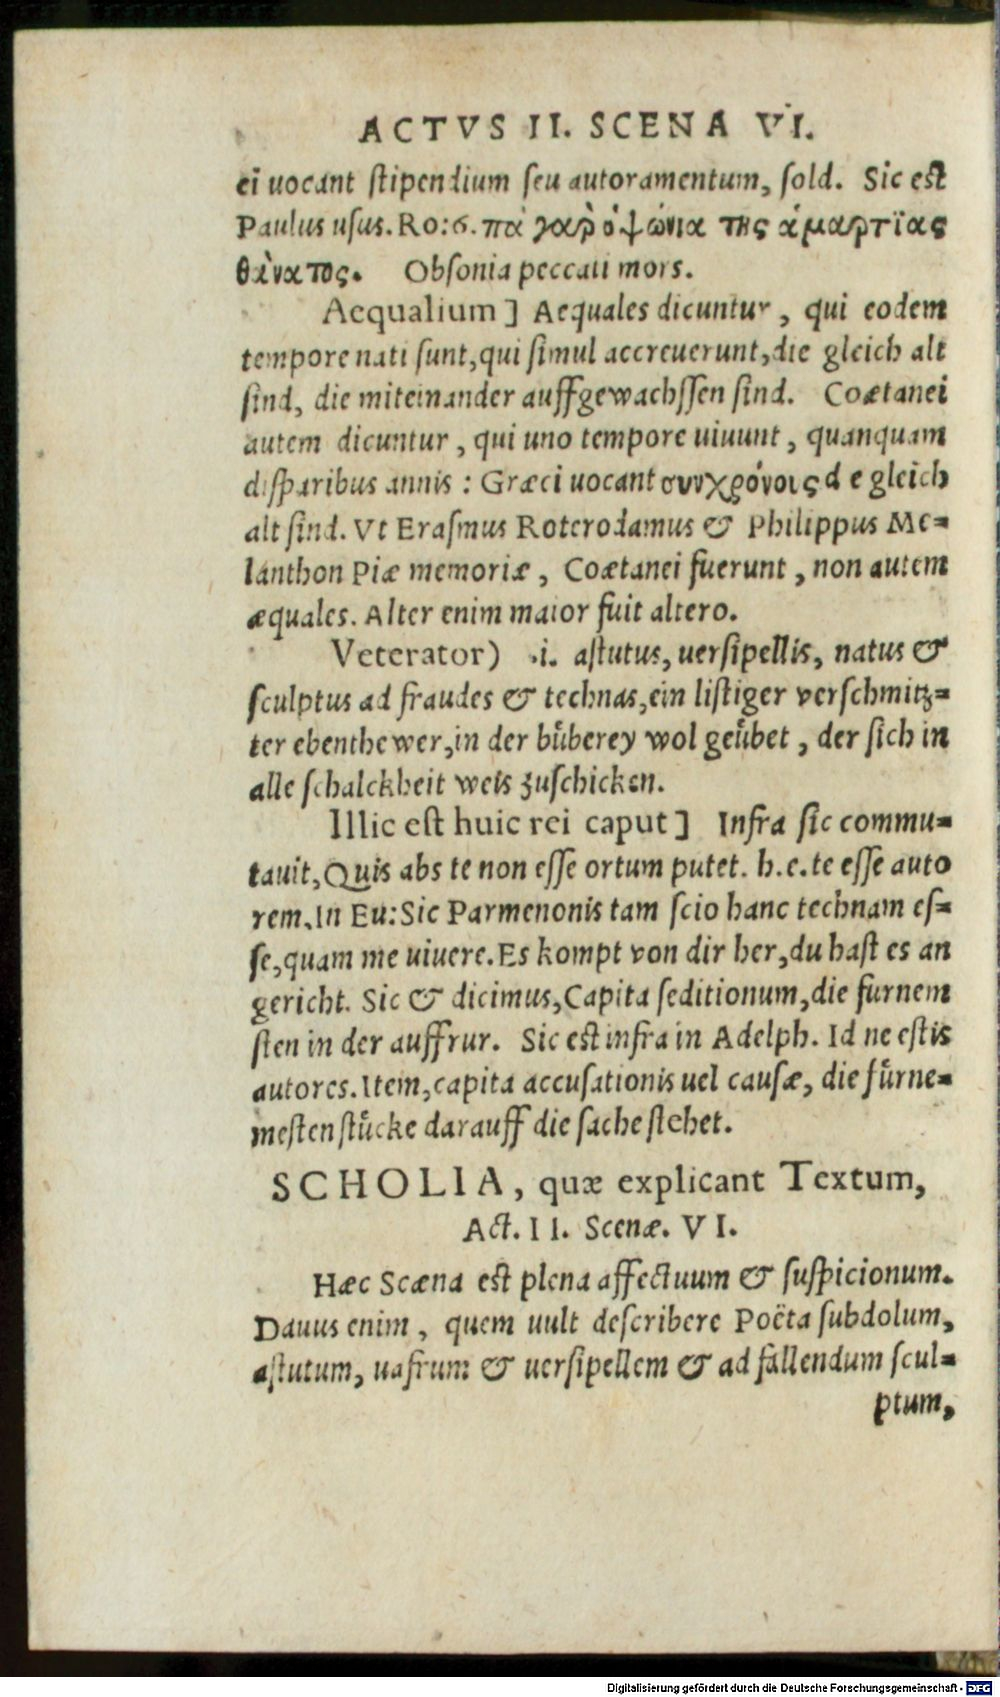 ACTVS II. SCENA VI.
ci uocant stipendium seu autoramentum, sold. Sic est
Paulus usus. Ro:6. πὰ γαρ ὀψώνια της ἁμαρτίας
θάνατος. Obsonia peccati mors.
Aequalium] Aequales dicuntur, qui eodem
tempore nati sunt, qui simul accreuerunt, die gleich alt
sind, die miteinander auffgewachssen sind. Coætanei
autem dicuntur, qui uno tempore uiuunt, quanquam
disparibus annis: Græci uocant συνχρόνοις d e gleich
alt sind. Vt Erasmus Roterodamus & Philippus Me=
lanthon Piæ memoriæ, Coætanei fuerunt, non autem
æquales. Alter enim maior fuit altero.
Veterator) .i. astutus, uersipellis, natus &
sculptus ad fraudes & technas, ein listiger verschmitz=
ter ebenthewer, in der büberey wol geübet, der sich in
alle schalckheit weis zuschicken.
Illic est huic rei caput] Infra sic commu=
tauit, Quis abs te non esse ortum putet. h.e. te esse auto
rem. In Eu: Sic Parmenonis tam scio hanc technam es=
se, quam me uiuere. Es kompt von dir her, du hast es an
gericht. Sic & dicimus, Capita seditionum, die furnem
sten in der auffrur. Sic est infra in Adelph. Id ne estis
autores. Item, capita accusationis uel causæ, die fürne=
mesten stücke darauff die sache stehet.
SCHOLIA, quæ explicant Textum,
Act. II. Scenæ. VI.
Hæc Scæna est plena affectuum & suspicionum.
Dauus enim, quem uult describere Poëta subdolum,
astutum, uafrum & uersipellem & ad fallendum scul=
ptum,
Digitalisierung gefördert durch die Deutsche Forschungsgemeinschaft - DFG